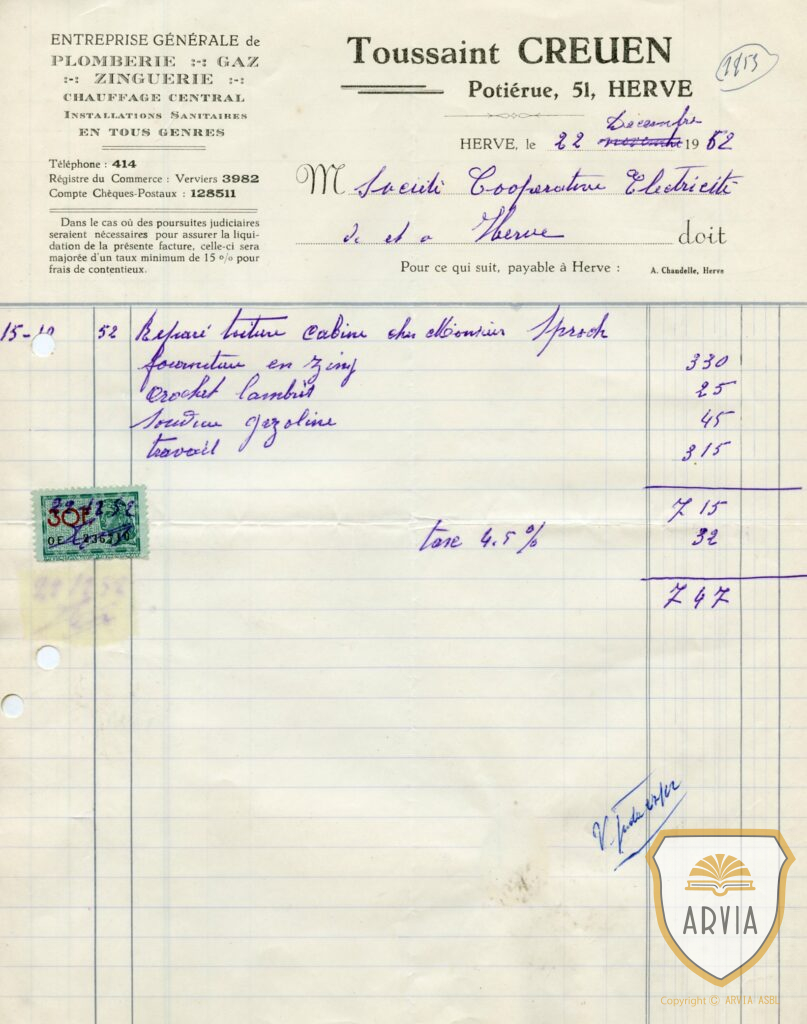 ENTREPRISE GÉNÉRALE de
PLOMBERIE :-: GAZ
:-: ZINGUERIE :-:
CHAUFFAGE CENTRAL
INSTALLATIONS SANITAIRES
EN TOUS GENRES
Téléphone : 414
Régistre du Commerce : Verviers 3982
Compte Chèques-Postaux : 128511
Dans le cas où des poursuites judiciaires
seraient nécessaires pour assurer la liqui-
dation de la présente facture, celle-ci sera
majorée d'un taux minimum de 15 % pour
frais de contentieux.
Toussaint CREUEN
Potiérue, 51, HERVE
1853
Décembre
HERVE, le 22 novembre 1952
M Société Cooperative Electricité
d. et a Herve doit
Pour ce qui suit, payable à Herve :
A. Chandelle, Herve
15-10 52 Reparé toiture cabine chez Monsieur Sproch
fourniture en zing 330
crochet lambris 25
soudure gazoline 45
travail 315
715
taxe 4.5 % 32
747
30F
22.12.52
OE 236210
22 12 52
ARVIA
Copyright © ARVIA ASBL